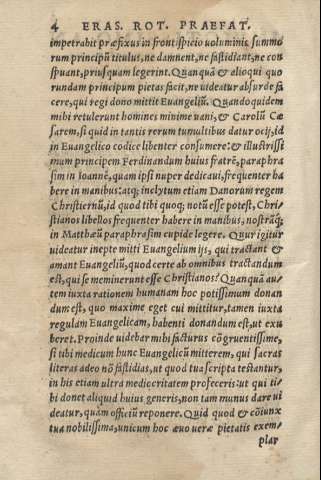 4 ERAS. ROT. PRAEFAT.
impetrabit præfixus in frontispicio voluminis summo
rum principū titulus, ne damnent, ne fastidiāt, ne con
spuant, priusquam legerint. Quanquā & alioqui quo
rundam principum pietas facit, ne uideatur absurde fa
cere, qui regi dono mittit Euangeliū. Quandoquidem
mihi retulerunt homines minime uani, & Carolū Cæ
sarem, si quid in tantis rerum tumultibus datur ocij, id
in Euangelico codice libenter consumere: & illustrissi
mum principem Ferdinandum huius fratrē, paraphra
sim in Ioannē, quam ipsi nuper dedicaui, frequenter ha
bere in manibus: atq; inclytum etiam Danorum regem
Christiernū, id quod tibi quoq; notū esse potest, Chri
stianos libellos frequenter habere in manibus, nostrāq;
in Matthæū paraphrasim cupide legere. Quur igitur
uideatur inepte mitti Euangelium ijs, qui tractant &
amant Euangeliū, quod certe ab omnibus tractandum
est, qui se meminerunt esse Christianos? Quanquā au
tem iuxta rationem humanam hoc potissimum donan
dum est, quo maxime eget cui mittitur, tamen iuxta
regulam Euangelicam, habenti donandum est, ut exu
beret. Proinde uidebar mihi facturus cōgruentissime,
si tibi medicum hunc Euangelicū mitterem, qui sacras
literas adeo nō fastidias, ut quod tua scripta testantur,
in his etiam ultra mediocritatem profeceris: ut qui ti
bi donet aliquid huius generis, non tam munus dare ui
deatur, quàm officiū reponere. Quid quod & cōiunx
tua nobilissima, unicum hoc æuo veræ pietatis exem
plar